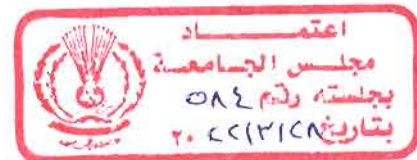 اعتمــــاد
مجلس الجامعة
بجلسته رقم ٥٨٤
بتاريخ ٢٠٢٢/٣/٢٨